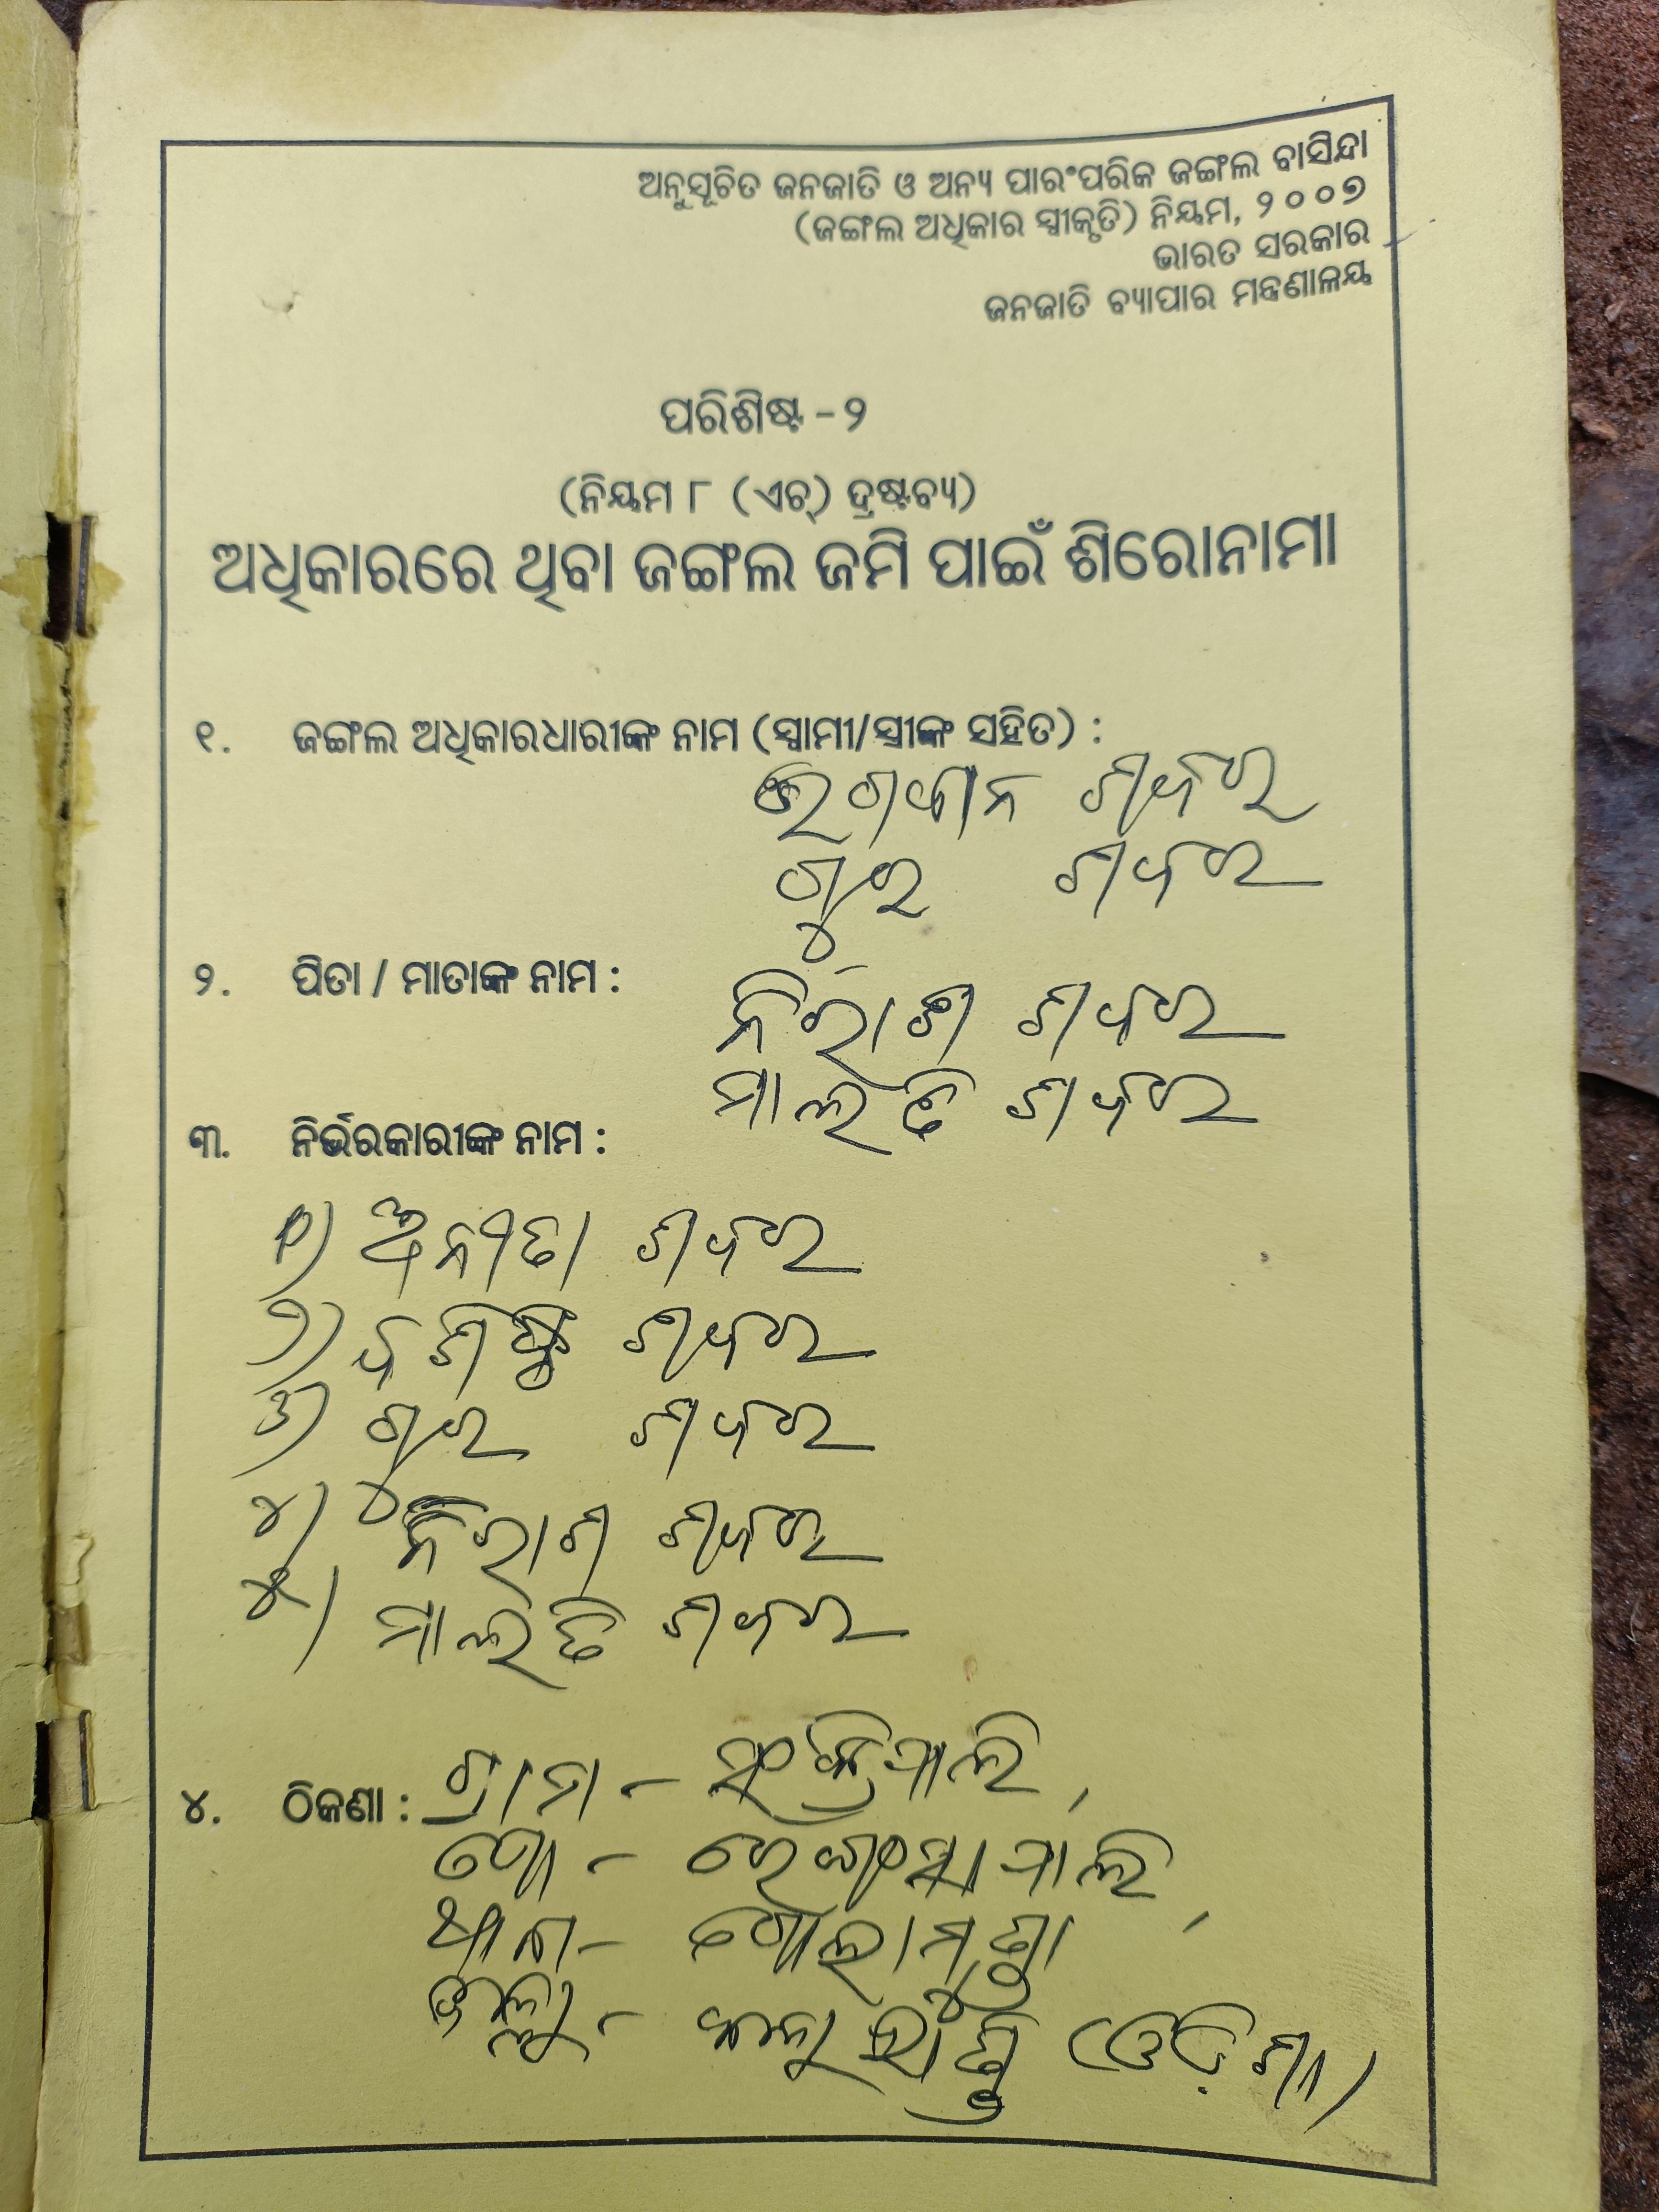 ଅନୁସୂଚିତ ଜନଜାତି ଓ ଅନ୍ୟ ପାରଂପରିକ ଜଙ୍ଗଲ ବାସିନ୍ଦା
(ଜଙ୍ଗଲ ଅଧିକାର ସ୍ୱୀକୃତି) ନିୟମ, ୨୦୦୭
ଭାରତ ସରକାର
ଜନଜାତି ବ୍ୟାପାର ମନ୍ତ୍ରଣାଳୟ
ପରିଶିଷ୍ଟ - ୨
(ନିୟମ ୮ (ଏଚ୍) ଦ୍ରଷ୍ଟବ୍ୟ)
ଅଧିକାରରେ ଥିବା ଜଙ୍ଗଲ ଜମି ପାଇଁ ଶିରୋନାମା
୧. ଜଙ୍ଗଲ ଅଧିକାରଧାରୀଙ୍କ ନାମ (ସ୍ୱାମୀ/ସ୍ତ୍ରୀଙ୍କ ସହିତ) :
ଶବର
ଗୁର ଶବର
୨. ପିତା / ମାତାଙ୍କ ନାମ :
ନିରାଶ ଶବର
ମାଲତି ଶବର
୩. ନିର୍ଭରକାରୀଙ୍କ ନାମ :
୧) ଅନୀତା ଶବର
୨) ଶବର
୩) ଗୁର ଶବର
୪) ନିରାଶ ଶବର
୫) ମାଲତି ଶବର
୪. ଠିକଣା : ଗ୍ରାମ -
ପୋ -
ଥାନା - ଗୋଲାମୁଣ୍ଡା
ଜିଲ୍ଲା - କଳାହାଣ୍ଡି (ଓଡ଼ିଶା)